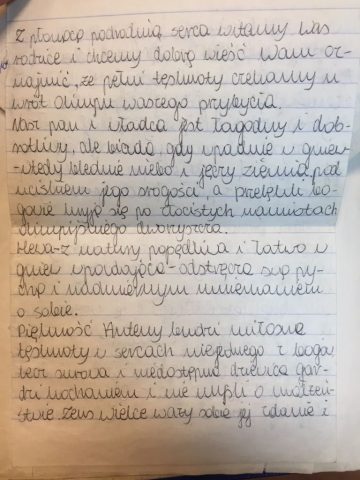 Z płonącą pochodnią serca witamy Was
rodzice i chcemy dobrą wieść Wam oz-
najmić, że pełni tęsknoty czekamy u
wrót Olimpu waszego przybycia.
Nasz pan i władca jest łagodny i dob-
rotliwy, ale biada, gdy wpadnie w gniew-
-wtedy blednie niebo i jęczy ziemia pod
uciskiem jego srogości, a przelękli bo-
gowie kryją się po złocistych namiotach
olimpijskiego dworzyszcza.
Hera-z natury popędliwa i łatwo w
gniew wpadająca-odstręcza swą py-
chą i nadmiernym mniemaniem
o sobie.
Piękność Ateny budzi miłosne
tęsknoty w sercach niejednego z bogów,
lecz surowa i niedostępna dziewica gar-
dzi kochaniem i nie myśli o małżeń-
stwie. Zeus wielce waży sobie jej zdanie i